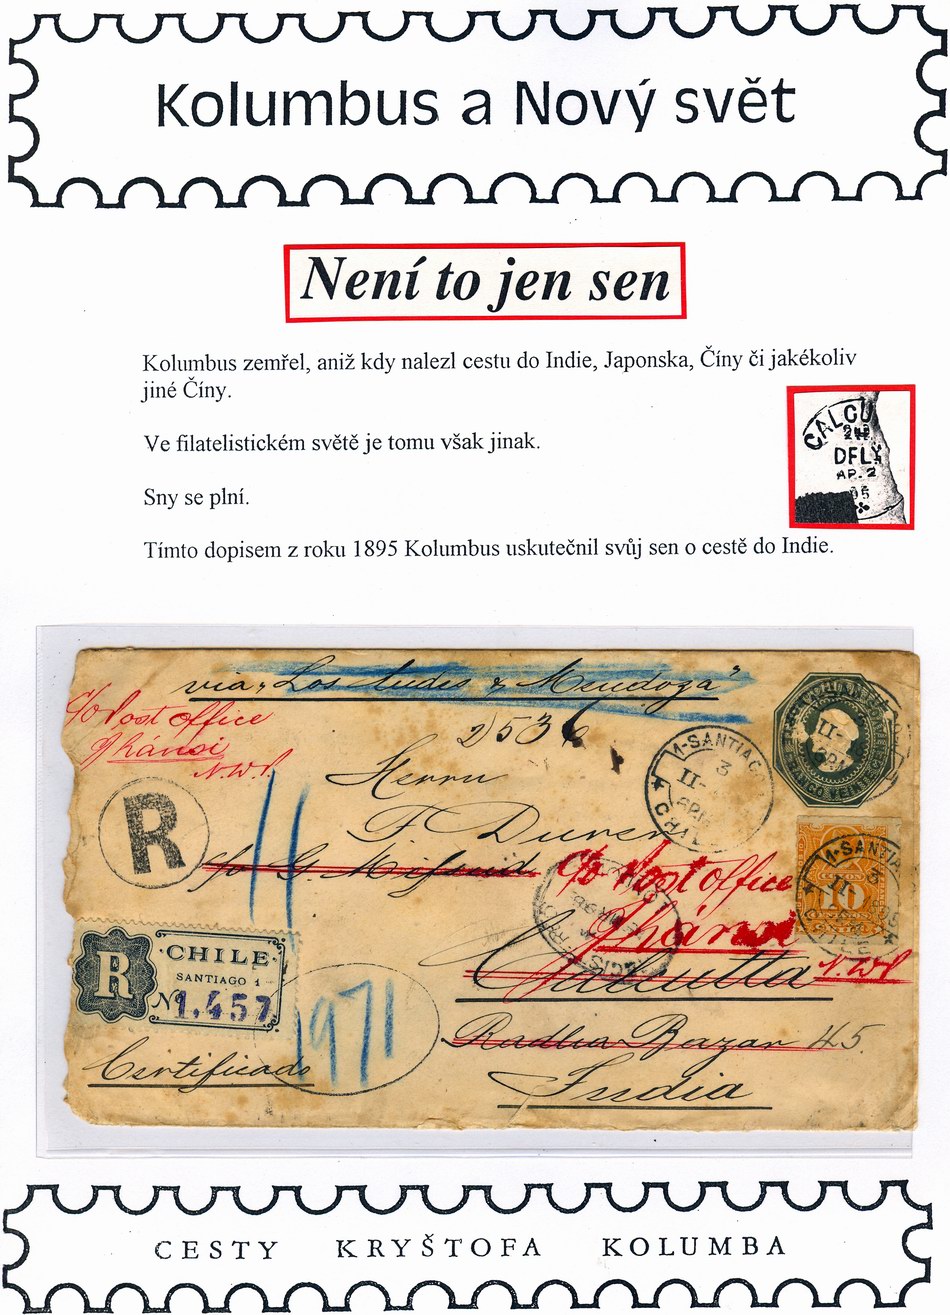 Kolumbus a Nový svět
Není to jen sen
Kolumbus zemřel, aniž kdy nalezl cestu do Indie, Japonska, Číny či jakékoliv
jiné Číny.
Ve filatelistickém světě je tomu však jinak.
Sny se plní.
Tímto dopisem z roku 1895 Kolumbus uskutečnil svůj sen o cestě do Indie.
CALCU
DELY
AP. 2
95
via "Los Andes & Mendoza"
c/o Post office
Jhánsi
N.W.P.
2536
Herrn
F.
R
c/o G.
c/o Post office
Jhánsi
N.W.P
Calcutta
Radha Bazar 45.
India
M-SANTIAG
3
II-
CHILE
R
SANTIAGO 1
Nº 1.457
971
Certificado
M-SANTIA
3
II-
10
CESTY KRYŠTOFA KOLUMBA